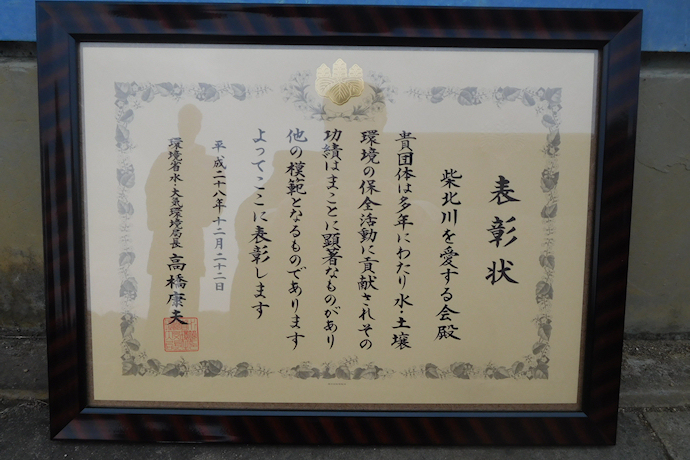 表彰状
柴北川を愛する会殿
貴団体は多年にわたり水・土壌
環境の保全活動に貢献されその
功績はまことに顕著なものがあり
他の模範となるものであります
よってここに表彰します
平成二十八年十二月二十二日
環境省水・大気環境局長 高橋康夫